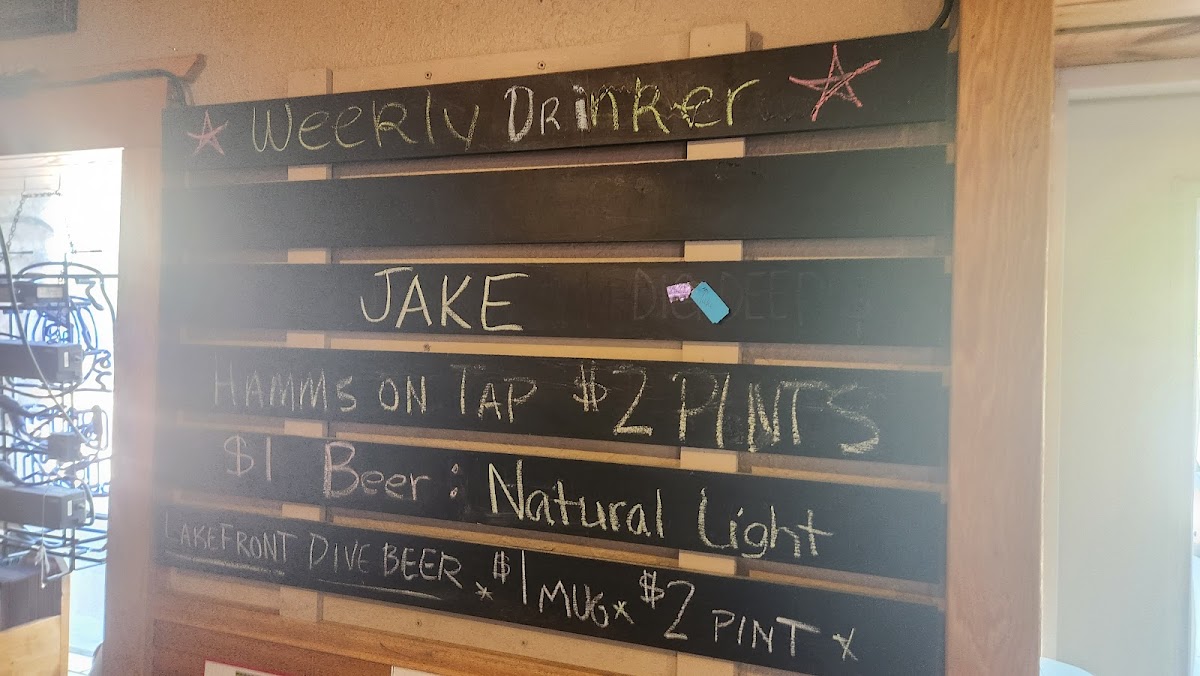 Weekly Drinker
JAKE DIG DEEP
HAMMS ON TAP $2 PINTS
$1 Beer: Natural Light
LAKEFRONT DIVE BEER *$1 MUG* $2 PINT*